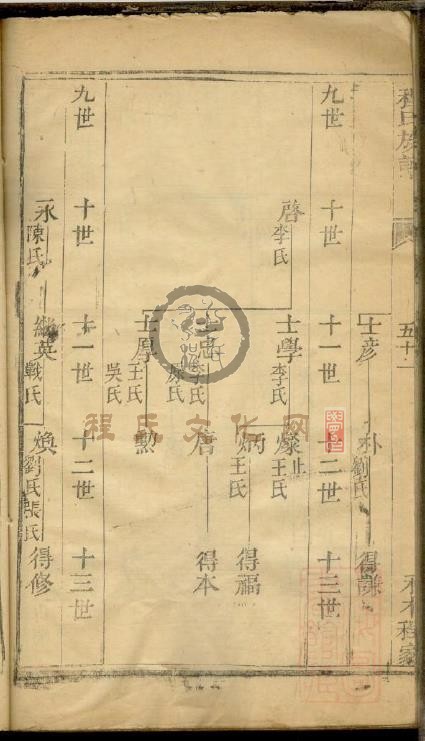 程氏族譜
五十一
士彥
朴 劉氏
得謙
九世 十世 十一世 十二世 十三世
啓 李氏
士學 李氏
燦 王氏 止
炳 王氏
得福
士忠 李氏
唐
得本
士厚 王氏 吳氏
勲
九世 十世 十一世 十二世 十三世
永 陳氏
繼英 戰氏
煥 劉氏 張氏
得修
程氏文化网